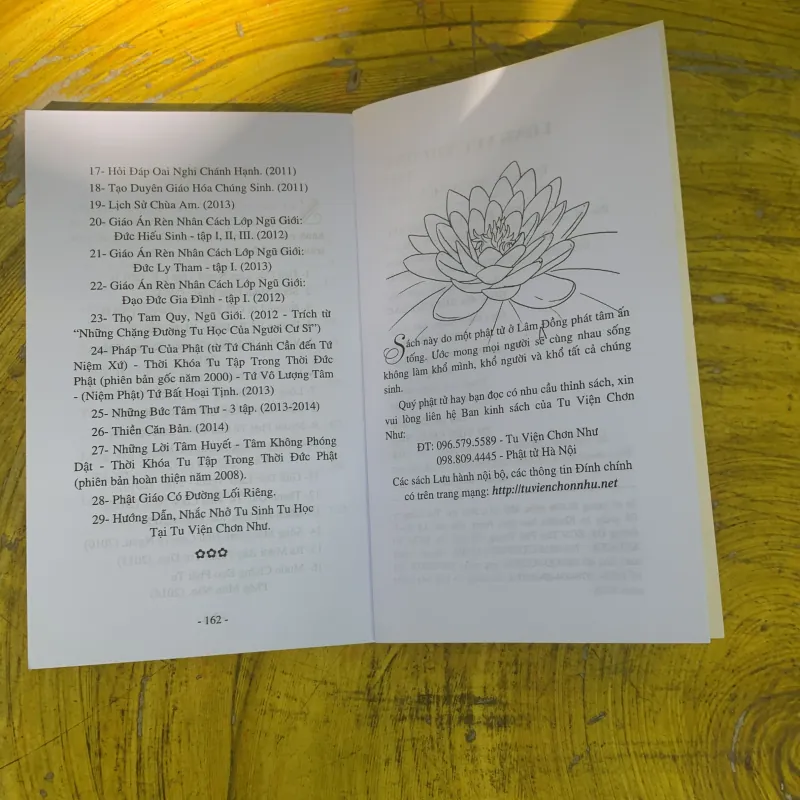 17- Hỏi Đáp Oai Nghi Chánh Hạnh. (2011)
18- Tạo Duyên Giáo Hóa Chúng Sinh. (2011)
19- Lịch Sử Chùa Am. (2013)
20- Giáo Án Rèn Nhân Cách Lớp Ngũ Giới:
Đức Hiếu Sinh - tập I, II, III. (2012)
21- Giáo Án Rèn Nhân Cách Lớp Ngũ Giới:
Đức Ly Tham - tập I. (2013)
22- Giáo Án Rèn Nhân Cách Lớp Ngũ Giới:
Đạo Đức Gia Đình - tập I. (2012)
23- Thọ Tam Quy, Ngũ Giới. (2012 - Trích từ
“Những Chặng Đường Tu Học Của Người Cư Sĩ”)
24- Pháp Tu Của Phật (từ Tứ Chánh Cần đến Tứ
Niệm Xứ) - Thời Khóa Tu Tập Trong Thời Đức
Phật (phiên bản gốc năm 2000) - Tứ Vô Lượng Tâm
- (Niệm Phật) Tứ Bất Hoại Tịnh. (2013)
25- Những Bức Tâm Thư - 3 tập. (2013-2014)
26- Thiền Căn Bản. (2014)
27- Những Lời Tâm Huyết - Tâm Không Phóng
Dật - Thời Khóa Tu Tập Trong Thời Đức Phật
(phiên bản hoàn thiện năm 2008).
28- Phật Giáo Có Đường Lối Riêng.
29- Hướng Dẫn, Nhắc Nhở Tu Sinh Tu Học
Tại Tu Viện Chơn Như.
- 162 -
Sách này do một phật tử ở Lâm Đồng phát tâm ấn
tống. Ước mong mọi người sẽ cùng nhau sống
không làm khổ mình, khổ người và khổ tất cả chúng
sinh.
Quý phật tử hay bạn đọc có nhu cầu thỉnh sách, xin
vui lòng liên hệ Ban kinh sách của Tu Viện Chơn
Như:
ĐT: 096.579.5589 - Tu Viện Chơn Như
098.809.4445 - Phật tử Hà Nội
Các sách Lưu hành nội bộ, các thông tin Đính chính
có trên trang mạng: http://tuvienchonnhu.net